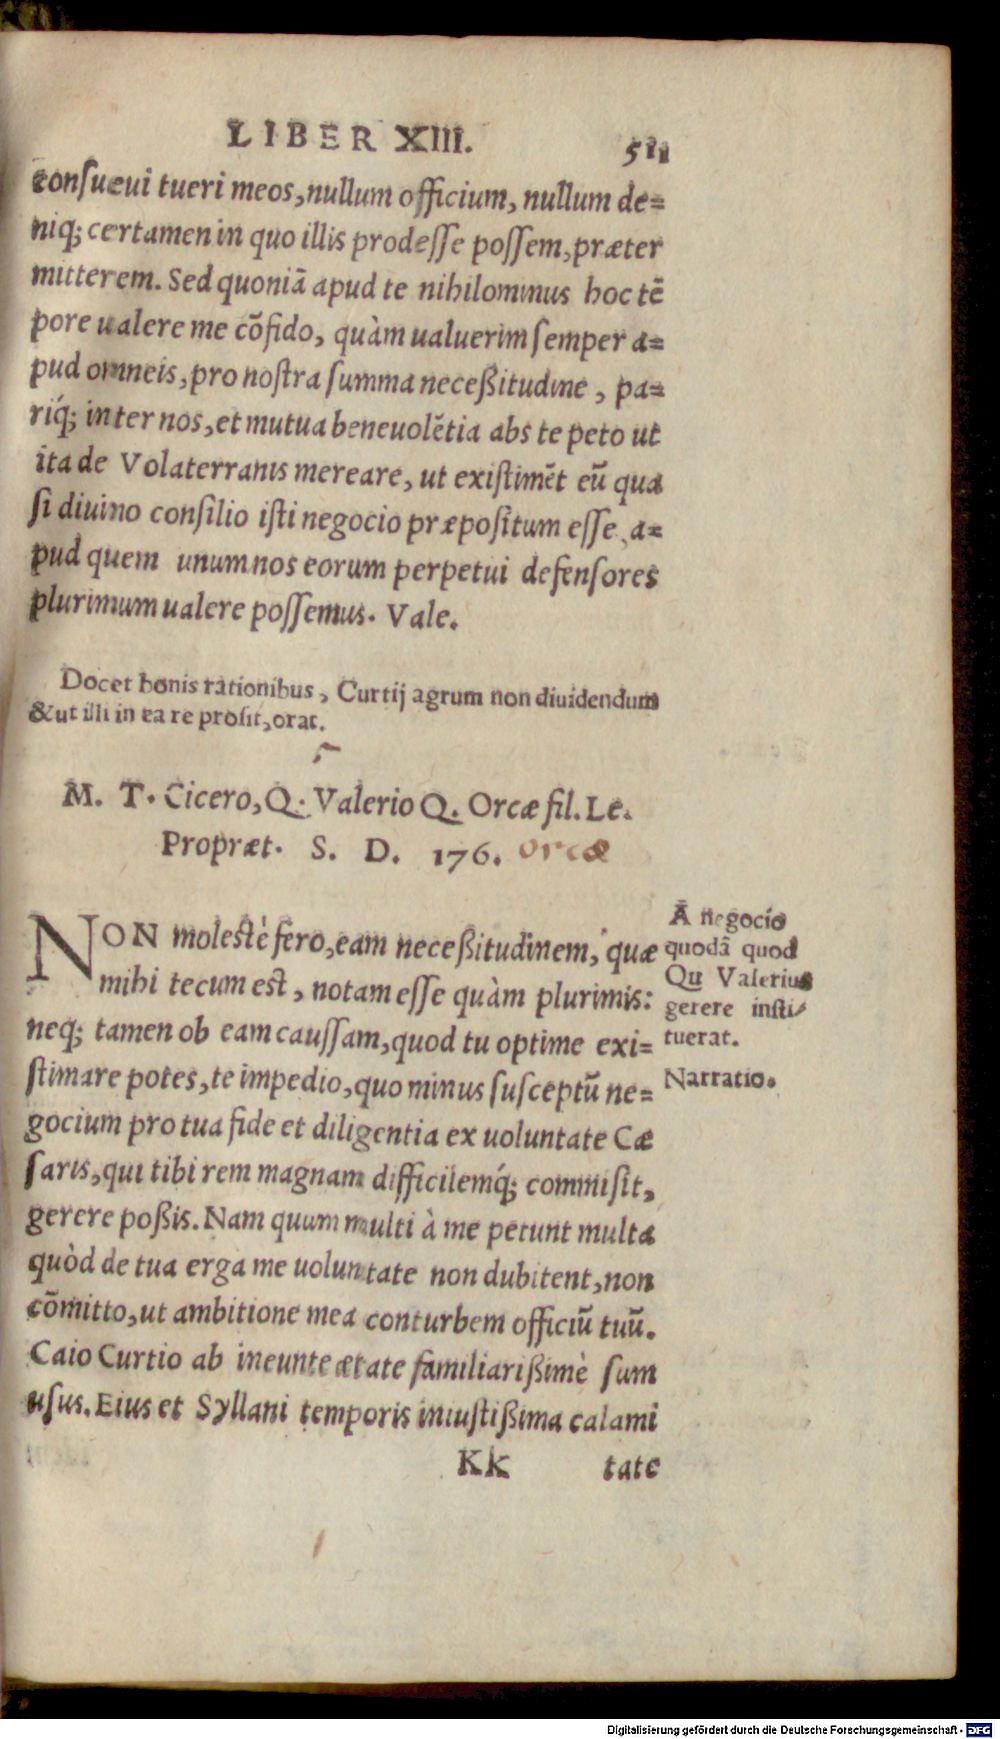 LIBER XIII. 511
conſueui tueri meos, nullum officium, nullum de=
niq; certamen in quo illis prodeſſe poſſem, præter
mitterem. Sed quoniā apud te nihilominus hoc tē
pore ualere me cōfido, quàm ualuerim ſemper a=
pud omneis, pro noſtra ſumma neceßitudine, pa=
riq́; inter nos, et mutua beneuolētia abs te peto ut
ita de Volaterranis mereare, ut exiſtimēt eū qua
ſi diuino conſilio iſti negocio præpoſitum eſſe, a=
pud quem unum nos eorum perpetui defenſores
plurimum ualere poſſemus. Vale.
Docet bonis rationibus, Curtij agrum non diuidendum
& ut illi in ea re proſit, orat.
M. T. Cicero, Q. Valerio Q. Orcæ fil. Le.
Propræt. S. D. 176. orcæ
NON moleſtè fero, eam neceßitudinem, quæ
mihi tecum eſt, notam eſſe quàm plurimis:
neq; tamen ob eam cauſſam, quod tu optime exi=
ſtimare potes, te impedio, quo minus ſuſceptū ne=
gocium pro tua fide et diligentia ex uoluntate Cæ
ſaris, qui tibi rem magnam difficilemq́; commiſit,
gerere poßis. Nam quum multi à me petunt multa
quòd de tua erga me uoluntate non dubitent, non
cōmitto, ut ambitione mea conturbem officiū tuū.
Caio Curtio ab ineunte ætate familiarißimè ſum
uſus. Eius et Syllani temporis iniuſtißima calami
Kk tate
A negocio
quodā quod
Qu Valerius
gerere inſti/
tuerat.
Narratio.
Digitalisierung gefördert durch die Deutsche Forschungsgemeinschaft - DFG